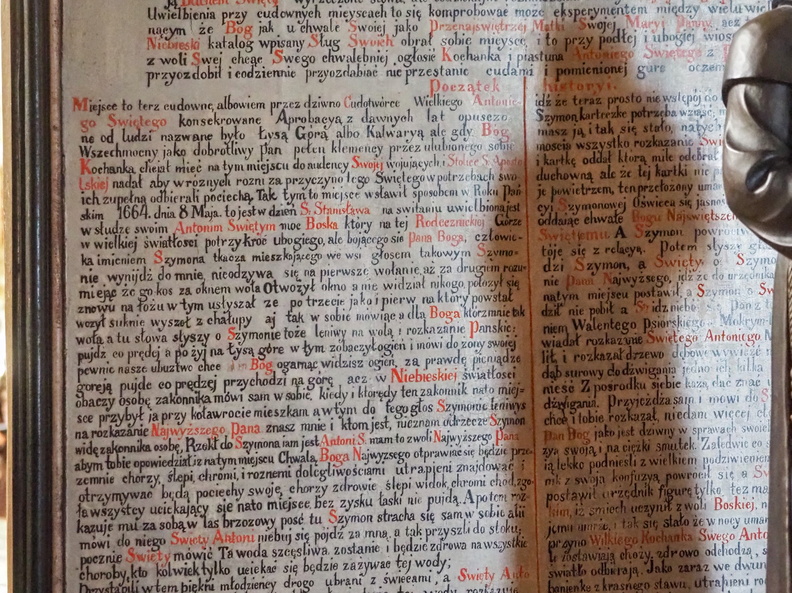 Uwielbienia przy cudownych mieyscach to się komprobować może eksperymentem między wielu
nącym że Bog jak u chwałę Swoiej jako Przenajswiętrzej Matki Swojej Maryi Panny
Niebieski katalog wpisany Sług Swoich obrał sobie mieysce, i to przy podłej i ubogiej
z woli Swej chcąc Swego chwalebniej ogłosic Kochanka i piastuna Antoniego Swiętego z
przyozdobił i codziennie przyozdabiac nie przestanie cudami i pomienionej gure
Początek historyi.
Miejsce to terz cudowne, albowiem przez dziwno Cudotworce Wielkiego Antonie-
go Swiętego konsekrowane Aprobacyą z dawnych lat opuszczo
ne od ludzi nazwane było Łysą Górą albo Kalwaryą ale gdy Bog
Wszechmocny jako dobrotliwy Pan pełen klemencyi przez ulubionego sobie
Kochanka chciał mieć na tym miejscu do audencyi Swojej wojujących i Stolice S. Aposto
lskiej nadał aby w roznych rozni za przyczyno tego Swiętego w potrzebach swo-
ich zupełną odbierali pociechą, Tak tym to miejsce wstawił sposobem w Roku Pań
skim 1664. dnia 8 Maja. to jest w dzień S. Stanisława na switaniu uwielbiona jest
w słudze swoim Antonim Swiętym moc Boska który na tej Radecznickiej Górze
w wielkiej swiatłosci potrzykroć ubogiego, ale bojącego się Pana Boga, człowie-
ka imieniem Szymona tkacza mieszkającego we wsi głosem takowym Szymo-
nie wynijdz do mnie, nieodzywa się na pierwsze wołanie, aż za drugiem rozu-
miejąc że go kos za oknem woła Otwożył okno a nie widział nikogo, położył się
znowu na łożu w tym usłyszał że po trzecie jako i pierw na który powstał
wożył suknie wyszoł z chałupy aj tak w sobie mówiąc a dla Boga ktoż mnie tak
woła a tu słowa słyszy o Szymonie toże leniwy na wolą i rozkazanie Pańskie:
pujdz co prędcj a pożyj na łysą górę w tym zobaczył ogień i mówi do zony swojej
pewnie nasze ubuztwo chce Bog ogarnąc widzisz ogien, za prawdę pieniądze
goreją pujde co prędzej przychodzi na górę, acz w Niebieskiej światłości
obaczy osobę zakonnika mówi sam w sobie, kiedy i ktorędy ten zakonnik na to miej-
sce przybył ja przy kołowrocie mieszkam aw tym do tego głos Szymonie leniwys
na rozkazanie Najwyższego Pana znasz mnie i ktom jest, rucznam odrzecze Szymon
widzę zakonnika osobę, Rzokł do Szymona iam jest Antoni S. mam to z woli Najwyzszego Pana
abym tobie opowiedział iz na tym miejscu Chwała, Boga Najwyzszego otprawiac się będzie prze-
zemnie chorzy, slepi, chromi, i roznemi dolegliwosciami utrapieni znajdować i
otrzymywać będą pociechy swoje, chorzy zdrowie slepi widok, chromi chod, zgo-
ła wszystcy uciekający się nato miejsce, bez zysku łaski nie pujdą. A potem roz-
kazuje mu za sobą w las brzozowy posć, tu Szymon stracha się sam w sobie ali
mówi do niego Swięty Antoni niebuj się pójdz za mną, a tak przyszli do stoku,
pocznie Swięty mówić Ta woda szczęśliwa zostanie i będzie zdrowa na wszystkie
choroby, kto kolwiek tylko uciekać się będzie zażywać tej wody;
Przystąpili w tem piękni młodziency drogo ubrani z swiecami, a Swięty Anto
idz że teraz prosto nie wstępój do
Szymon, karteczke potrzeba wziąc,
masz ją, i tak się stało, natych
moscią wszystko rozkazanie Swi
i kartkę oddał ktorą mile odebrał
duchowną, ale że tej kartki nie
je powietrzem, ten przełozony uma
cyi Szymonowej Oświeca się jasnos
oddając chwałe Bogu Najswiętsze
Swiętemu. A Szymon powtu
toje się z relacyą. Potem słyszy
dzi Szymon, a Swięty o Szymo
nie Pana Najwyzszego, idz że do urzędnika
natym miejscu postawił, a Szymon o Sw
dził nie pobił a S idz niebo Pan z t
niem Walentego Psiorskiego Mokrym
wiadał rozkazune Swiętego Antoniego
lił, i rozkazał drzewo dębów wywieźć
dąb surowy do dzwigania jedno ich, tylko
niesć Z posrodku siebie każą, dac znac
dzwigania. Przyjezdza sam i mówi do S
chce i lobie rozkazał, niedam więcej
Pan Bog jako jest dziwny w sprawach swoich
zyą swoją, i na ciężki smutek. Zaledwie co
ią lekko podnieśli z wielkiem podziwieniem
nik z swoją konfuzyą, powrócił się a Sw
postawił urzędnik figurę tylko, też ma
kim, iz smiech uczynił z woli Boskiej,
jemu umrzeć, i tak się stało że w nocy umar
przyno Wilkiego Kochanka Swego Anto
zostawiają chorzy, zdrowo odchodzą,
swiatło odbierają. Jako zaraz we dwun
banienkę z krasnego stawu, utrapieni